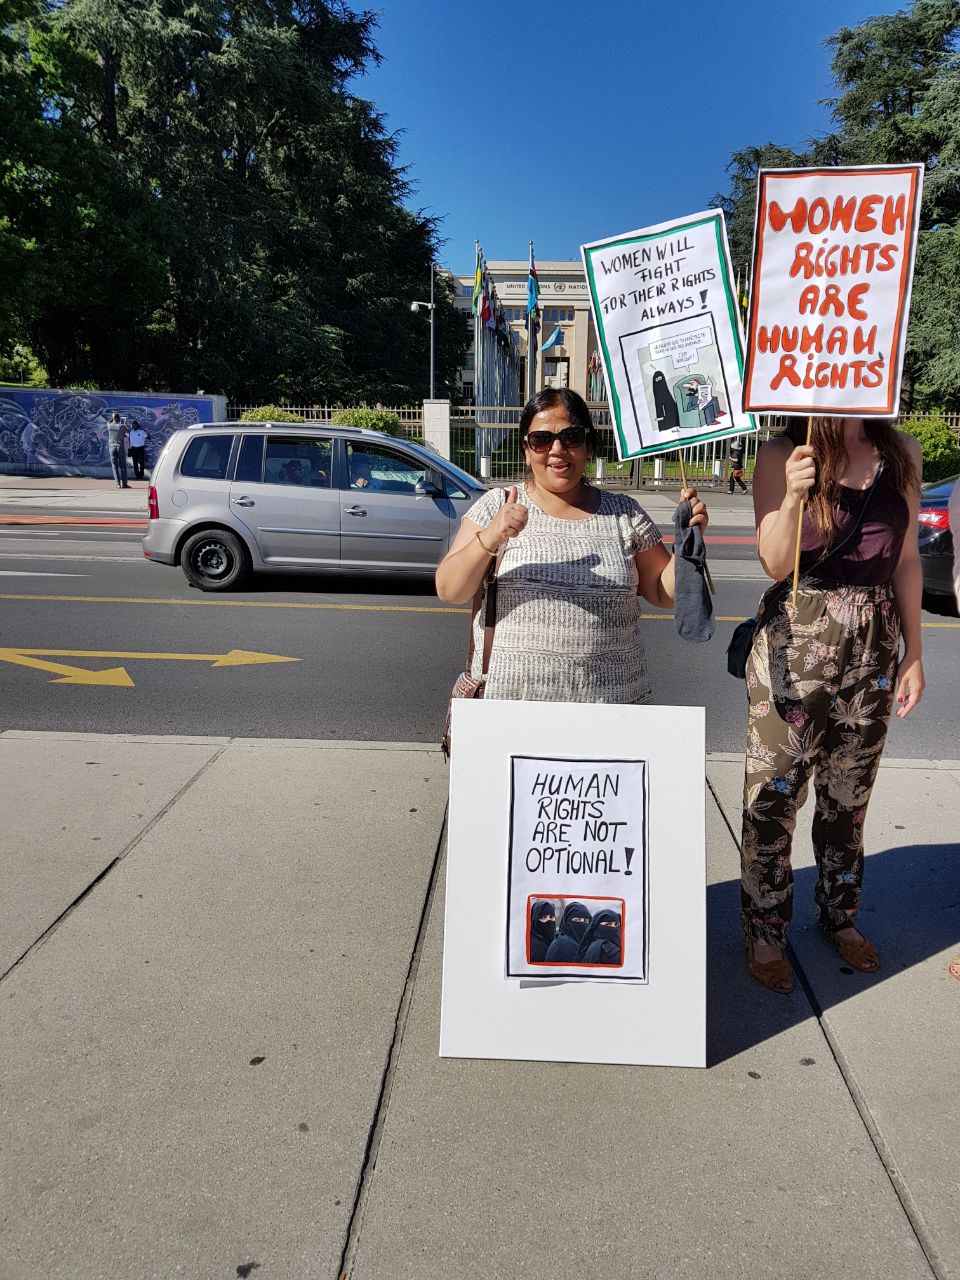 UNITED NATIONS
WOMEN WILL
FIGHT
FOR THEIR RIGHTS
ALWAYS!
WOMEN
RiGHTS
ARE
HUMAN
RiGHTS
HUMAN
RIGHTS
ARE NOT
OPTiONAL!